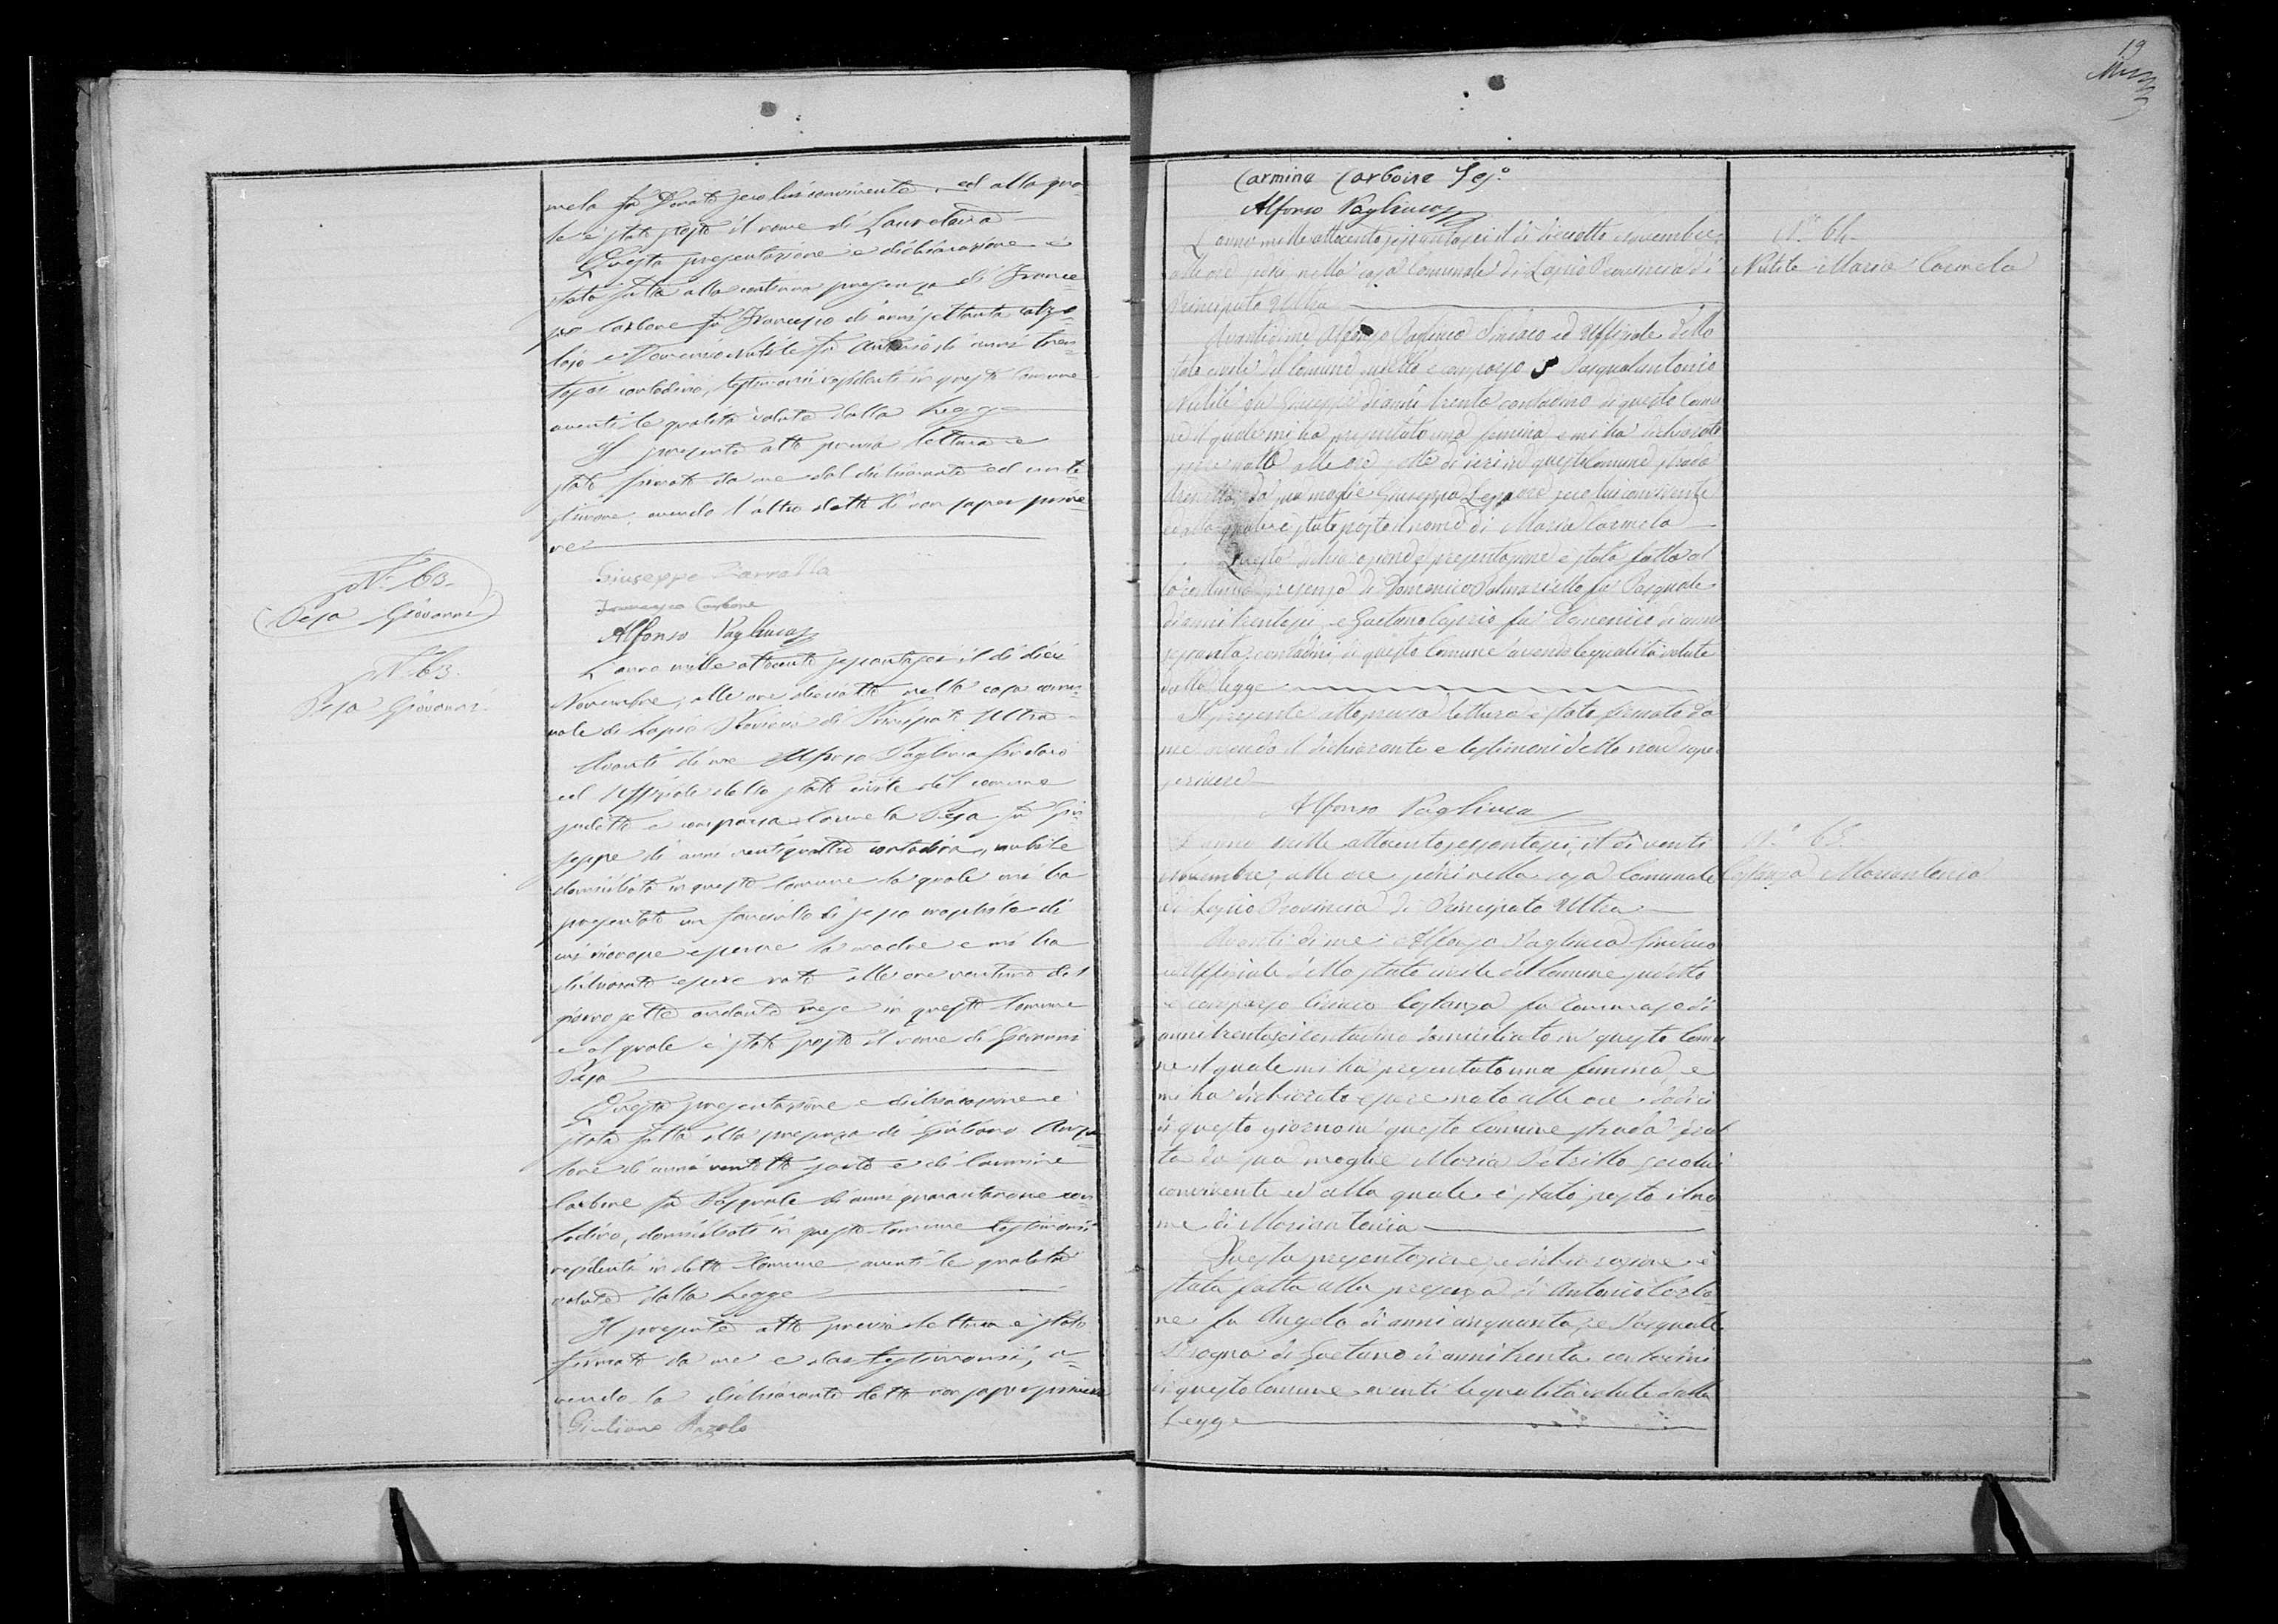 N. 63.
Pesa Giovanni
N. 63.
Pesa Giovanni
mela fu Donato seco lui convivente, ed alla qua-
le è stato posto il nome di
Questa presentazione e dichiarazione è
stata fatta alla continua presenza di France-
sco Carbone fu Francesco di anni settanta calzo-
lajo e Domenico Nutile fu Antonio di anni tren-
tasei contadino, testimonii residenti in questo Comune
aventi le qualità volute dalla Legge
Il presente atto previa lettura è
stato firmato da me dal dichiarante ed un te-
stimone avendo l'altro detto di non saper scrive-
re
Giuseppe Zarrella
Francesco Carbone
Alfonso Pagliuca
L'anno mille ottocento sessantasei il dì dieci
Novembre, alle ore diciotto nella casa comu-
nale di Lapio Provincia di Principato Ultra
Avanti di me Alfonso Pagliuca Sindaco
ed Uffiziale dello stato civile del comune
sudetto è comparsa Carmela Pesa fu Giu-
seppe di anni ventiquattro contadina, nubile
domiciliata in questo Comune la quale mi ha
presentato un fanciullo di sesso maschile di
cui riconosce essere la madre e mi ha
dichiarato essere nato alle ore ventuno del
giorno sette andante mese in questo Comune
e al quale è stato posto il nome di Giovanni
Pesa
Questa presentazione e dichiarazione è
stata fatta alla presenza di Giuliano Anzo-
lone di anni ventotto sarto e di Carmine
Carbone fu Pasquale di anni quarantanove con-
tadino, domiciliati in questo Comune testimonii
residenti in detto Comune aventi le qualità
volute dalla Legge
Il presente atto previa lettura è stato
firmato da me e dai testimonii, a-
vendo la dichiarante detto non saper scrivere
Giuliano
19
Carmine Carbone
Alfonso Pagliuca
L'anno mille ottocento sessantasei il dì diciotto novembre,
alle ore sedici nella casa Comunale di Lapio Provincia di
Principato Ultra
Avanti di me Alfonso Pagliuca Sindaco ed Uffiziale dello
stato civile del Comune sudetto è comparso Pasqualantonio
Nutile fu Giuseppe di anni trenta contadino di questo Comu-
ne il quale mi ha presentato una femina e mi ha dichiarato
essere nata alle ore sette di ieri in questo Comune strada
da sua moglie Giuseppa Lepore seco lui convivente
ed alla quale è stato posto il nome di Maria Carmela
Questa dichiarazione e presentazione è stata fatta al
la continua presenza di Domenico Palmariello fu Pasquale
di anni trentasei, e Gaetano Caprio fu Domenico di anni
sessanta contadini di questo Comune avendo le qualità volute
dalla legge
Il presente atto previa lettura è stato firmato da
me avendo il dichiarante e testimoni detto non saper
scrivere
Alfonso Pagliuca
L'anno mille ottocento sessantasei, il dì venti
Novembre, alle ore sedici nella casa Comunale
di Lapio Provincia di Principato Ultra
Avanti di me Alfonso Pagliuca Sindaco
ed Uffiziale dello stato civile del Comune sudetto
è comparso Ciriaco Costanza fu Tommaso di
anni trentasei contadino domiciliato in questo Comu
ne il quale mi ha presentato una femina, e
mi ha dichiarato essere nata alle ore dodici
di questo giorno in questo Comune strada
da sua moglie Maria Petrillo seco lui
convivente ed alla quale è stato posto il no
me di Mariantonia
Questa presentazione, e dichiarazione è
stata fatta alla presenza di Antonio Carbo-
ne fu Angelo di anni cinquanta, e Pasquale
di Gaetano di anni trenta contadini
di questo Comune aventi le qualità volute dalla
Legge
N.° 64.
Nutile Maria Carmela
N.° 65.
Costanza Mariantonia